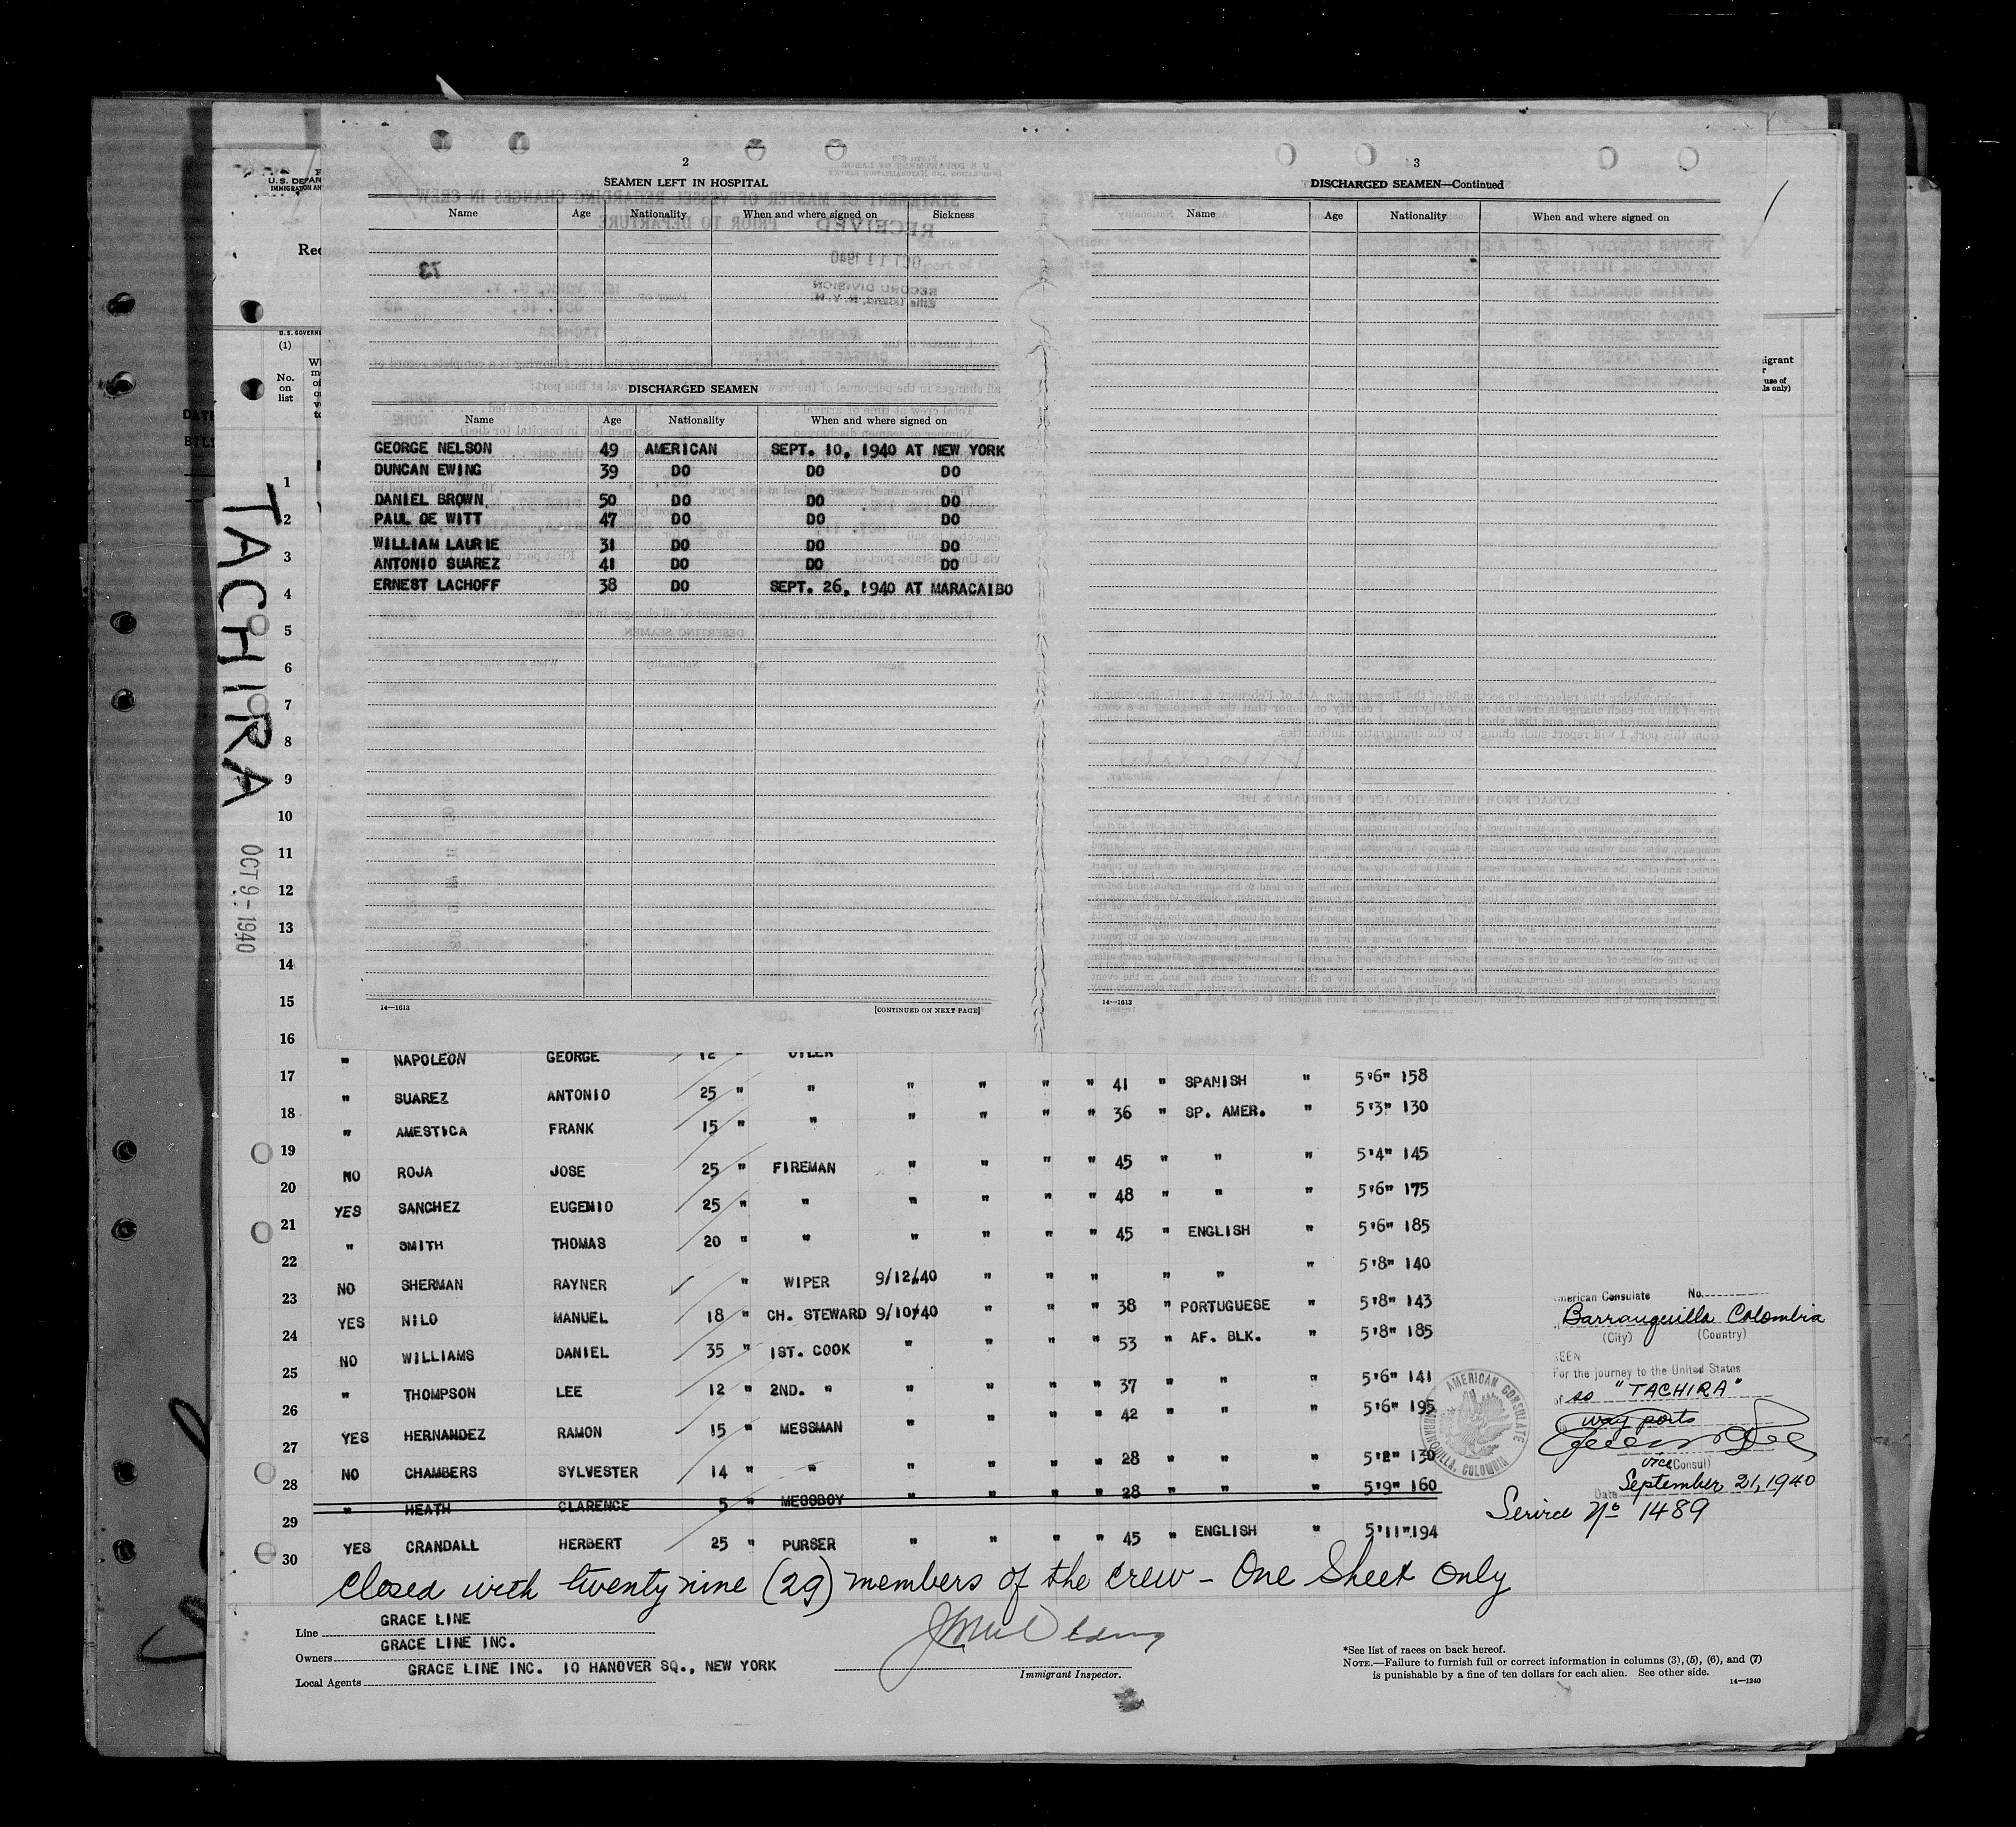 2
SEAMEN LEFT IN HOSPITAL
Name Age Nationality When and where signed on Sickness
DISCHARGED SEAMEN
Name Age Nationality When and where signed on
GEORGE NELSON 49 AMERICAN SEPT. 10, 1940 AT NEW YORK
DUNCAN EWING 39 DO DO DO
DANIEL BROWN 50 DO DO DO
PAUL DE WITT 47 DO DO DO
WILLIAM LAURIE 31 DO DO DO
ANTONIO SUAREZ 41 DO DO DO
ERNEST LACHOFF 38 DO SEPT. 26, 1940 AT MARACAIBO
14—1613 [CONTINUED ON NEXT PAGE]
3
DISCHARGED SEAMEN—Continued
Name Age Nationality When and where signed on
14—1613
(1)
No. on list
TACHIRA
OCT 9 - 1940
1
2
3
4
5
6
7
8
9
10
11
12
13
14
15
16
" NAPOLEON GEORGE 12 " OILER
17 " SUAREZ ANTONIO 25 " " " " " " 41 " SPANISH " 5'6" 158
18 " AMESTICA FRANK 15 " " " " " " 36 " SP. AMER. " 5'3" 130
19 NO ROJA JOSE 25 " FIREMAN " " " " 45 " " " 5'4" 145
20 YES SANCHEZ EUGENIO 25 " " " " " " 48 " " " 5'6" 175
21 " SMITH THOMAS 20 " " " " " " 45 " ENGLISH " 5'6" 185
22 NO SHERMAN RAYNER " WIPER 9/12/40 " " " " " " 5'8" 140
23 YES NILO MANUEL 18 " CH. STEWARD 9/10/40 " " " 38 " PORTUGUESE " 5'8" 143
24 NO WILLIAMS DANIEL 35 " 1ST. COOK " " " " 53 " AF. BLK. " 5'8" 185
25 " THOMPSON LEE 12 " 2ND. " " " " " 37 " " " 5'6" 141
26 YES HERNANDEZ RAMON 15 " MESSMAN " " " " 42 " " " 5'6" 195
27 NO CHAMBERS SYLVESTER 14 " " " " " " 28 " " " 5'2" 130
28 " HEATH CLARENCE 5 " MESSBOY " " " " 28 " " " 5'9" 160
29 YES CRANDALL HERBERT 25 " PURSER " " " " 45 " ENGLISH " 5'11" 194
30
Closed with twenty nine (29) members of the crew - One Sheet Only
Line GRACE LINE
Owners GRACE LINE INC.
Local Agents GRACE LINE INC. 10 HANOVER SQ., NEW YORK
Immigrant Inspector.
*See list of races on back hereof.
NOTE.—Failure to furnish full or correct information in columns (3), (5), (6), and (7)
is punishable by a fine of ten dollars for each alien. See other side.
14—1240
American Consulate No.
Barranquilla Colombia
(City) (Country)
SEEN
For the journey to the United States
of SS "TACHIRA"
way ports
vice Consul
Date September 21, 1940
Service No 1489
AMERICAN CONSULATE
BARRANQUILLA, COLOMBIA